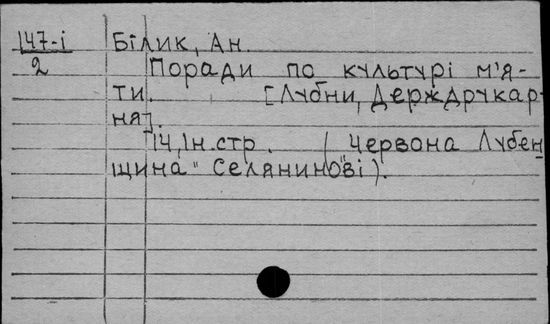 147-і Білик, Ан.
2 Поради по культурі м'я-
ти. [Лубни, Держдрукар-
ня].
14, Ін. стр. ( Червона Лубен
щина" Селянинові").